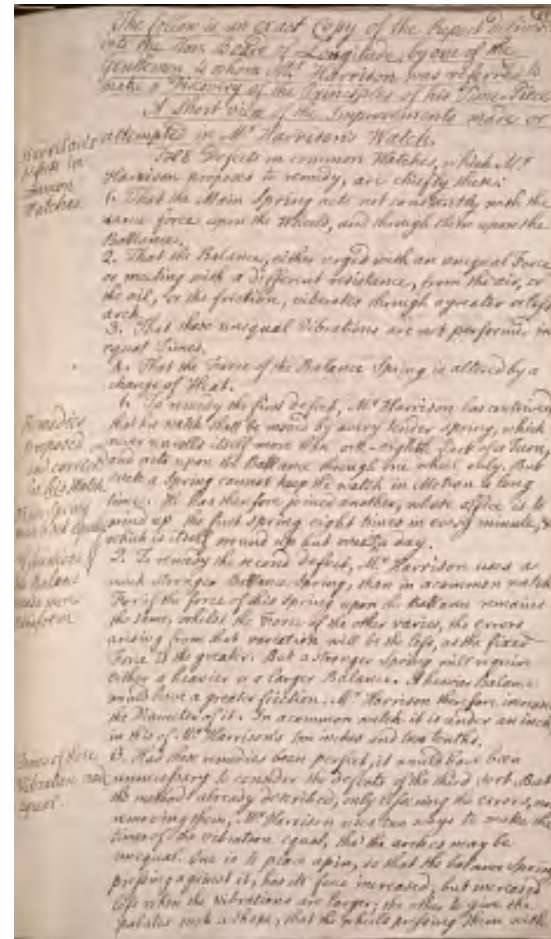 The follow is an exact Copy of the Report delivered
into the Hon. Board of Longitude, by one of the
Gentlemen to whom Mr. Harrison was referred to
make a Discovery of the Principles of his Time-Piece
A Short view of the Improvements made or
attempted in Mr Harrison's Watch.
Defects in
Common
Watches
THE Defects in common Watches, which Mr
Harrison proposes to remedy, are chiefly these:
1. That the Main Spring acts not constantly with the
same force upon the Wheels, and through them upon the
Ballance.
2. That the Balance, either urged with an unequal Force
or meeting with a different resistance, from the air, or
the oil, or the friction, vibrates through a greater or less
arch.
3. That these unequal Vibrations are not performed in
equal Times.
4. That the Force of the Balance Spring is altered by a
change of Heat.
Remedies
proposed
and
in his Watch
Main Spring
1. To remedy the first defect, Mr Harrison has contrived
that his watch shall be moved by a very tender spring, which
never unrolls itself more than one-eighth part of a Turn,
and acts upon the Ballance through one wheel only. But
such a Spring cannot keep the Watch in Motion a long
time. He has therefore joined another, whose office is to
wind up the first spring eight times in every minute, &
which is itself wound up but once a day.
Vibrations of
the Balance
made more
uniform
2. To remedy the second defect, Mr Harrison uses a
much stronger Ballance Spring, than in a common watch
For if the force of this spring upon the Ballance remains
the same, whilst the Force of the other varies, the errors
arising from that variation will be the less, as the fixed
Force is the greater. But a stronger Spring will require
either a heavier or a larger Balance. A heavier Balance
would have a greater friction. Mr Harrison therefore increases
the Diameter of it. In a common watch it is under an inch,
in this of Mr Harrison's two inches and two tenths.
Times of these
Vibration made
equal.
3. Had these remedies been perfect, it would have been
unnecessary to consider the defects of the third sort. But
the methods already described, only lessening the errors, not
removing them, Mr Harrison uses two ways to make the
times of the vibration equal, tho' the arches may be
unequal. One is to place a pin, so that the balance Spring
pressing against it, has its force increased, but increased
less when the vibrations are larger; the other to give the
pallets such a shape, that the wheels pressing them with